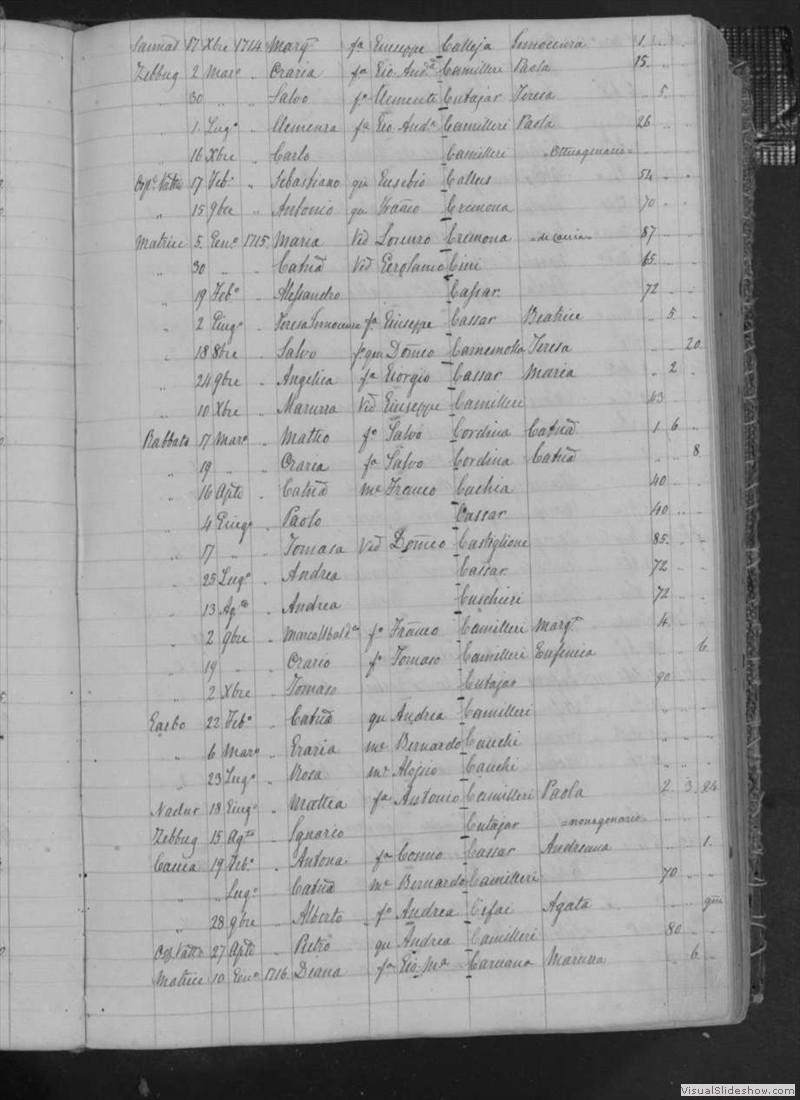 Sannat 17 Xbre 1714 Margta fa Giuseppe Calleja Innocenza 1 " "
Zebbug 2 Marzo " Grazia fa Gio Anda Camilleri Paola 15 " "
" 30 " " Salvo fo Clemente Cutajar Teresa " 5 "
" 1 Lugo " Clemenza fa Gio Anda Camilleri Paola 26 " "
" 16 Xbre " Carlo Camilleri =Ottuagenario=
17 Febo " Sebastiano qu Eusebio Calleis 54 " "
" 15 9bre " Antonio qu Franco Cremona 70 " "
Matrice 5 Geno 1715 Maria Vid Lorenzo Cremona 87 " "
" 30 " " Catna Vid Gerolamo Cini 65 " "
" 19 Febo " Alessandro Cassar 72 " "
" 2 Giugo " Teresa Innocenza fa Giuseppe Cassar Beatrice " 5 "
" 18 8bre " Salvo fo qu Domco Teresa " " 20
" 24 9bre " Angelica fa Giorgio Cassar Maria " 2 "
" 10 Xbre " Maruzza Vid Giuseppe Camilleri 43 " "
Rabbato 17 Marzo " Matteo fo Salvo Cordina Catna 1 6 "
" 19 " " Grazia fa Salvo Cordina Catna " " 8
" 16 Aple " Catna me Franco Cachia 40 " "
" 4 Giugo " Paolo Cassar 40 " "
" 17 " " Tomasa Vid Domco Castiglione 85 " "
" 25 Lugo " Andrea Cassar 72 " "
" 13 Agto " Andrea Cuschieri 72 " "
" 2 9bre " Marco Ubaldo fo Franco Camilleri Margta 4 " "
" 19 " " Grazio fo Tomaso Camilleri Eufemia " " 6
" 2 Xbre " Tomaso Cutajar 90 " "
Garbo 22 Febo " Catna qu Andrea Camilleri " " "
" 6 Marzo " Grazia me Bernardo Cauchi " " "
" 23 Lugo " Rosa me Aloisio Cauchi " " "
Nadur 18 Giugo " Mattia fa Antonio Camilleri Paola 2 3 24
Zebbug 15 Agto " Ignazio Cutajar =nonagenario " " "
Caccia 19 Febo " Antona fa Cosmo Cassar Andreana " " 1
" " Lugo " Catna me Bernardo Camilleri 70 " "
" 28 9bre " Alberto fo Andrea Cefai Agata " "
27 Aple " Pietro qu Andrea Camilleri 80 " "
Matrice 10 Geno 1716 Diana fa Gio Ma Caruana Maruzza " 6 "
VisualSlideshow.com